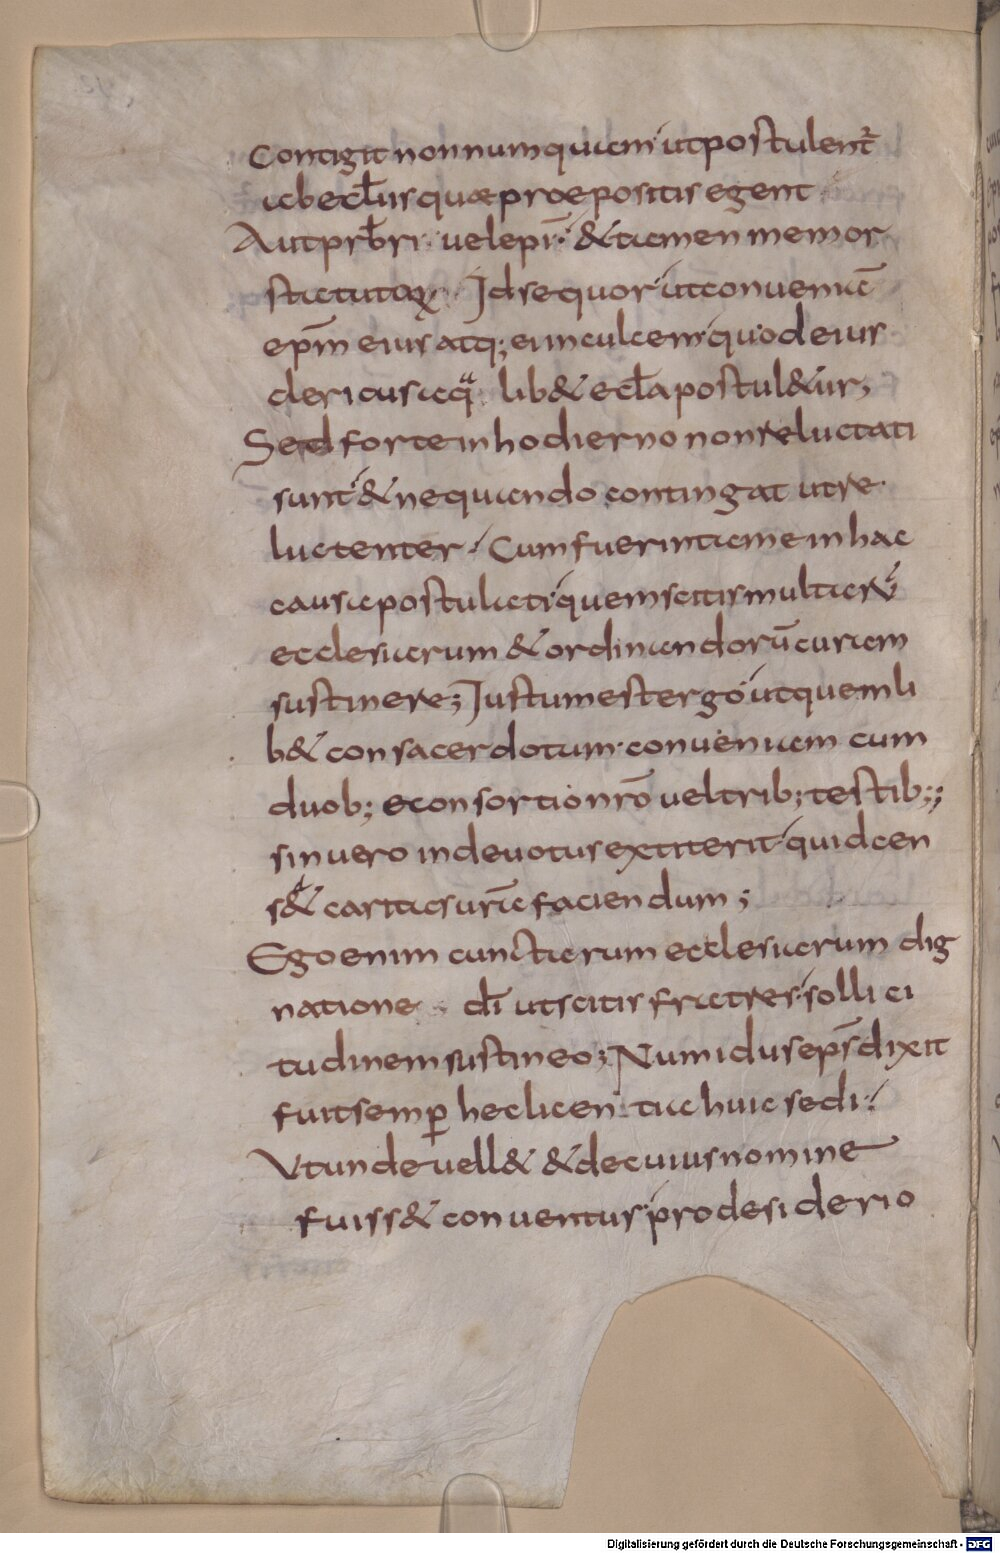 Contigit nonnumquam ut postulent᷑
ab ecłiis quae praepositis egent
Aut prƀri vel epī &tamen memor
statutoꝝ Id sequor ut conveniā
epm̄ eius atq; ei inculcem quod eius
clericus a qua lib& ecła postul&ur;
Sed forte in hodierno non reluctati
sunt & nequando contingat ut re
luctenter Cum fuerint a me in hac
causa postulati quem scitis multarū
ecclesiarum & ordinandorū curam
sustinere; Iustum est ergo ut quem li
b& consacerdotum conveniam cum
duob; e consortio nrō vel trib; testib;;
sin vero indevotus extiterit quid cen
s& caritas ur̄a faciendum;
Ego enim cunctarum ecclesiarum dig
natione dī ut scitis fratres sollici
tudinem sustineo; Numidus eps̄ dixit
fuit semꝑ hec licentia huic sedi
Ut unde vell& & de cuius nomine
fuiss& conventus pro desiderio
Digitalisierung gefördert durch die Deutsche Forschungsgemeinschaft - DFG